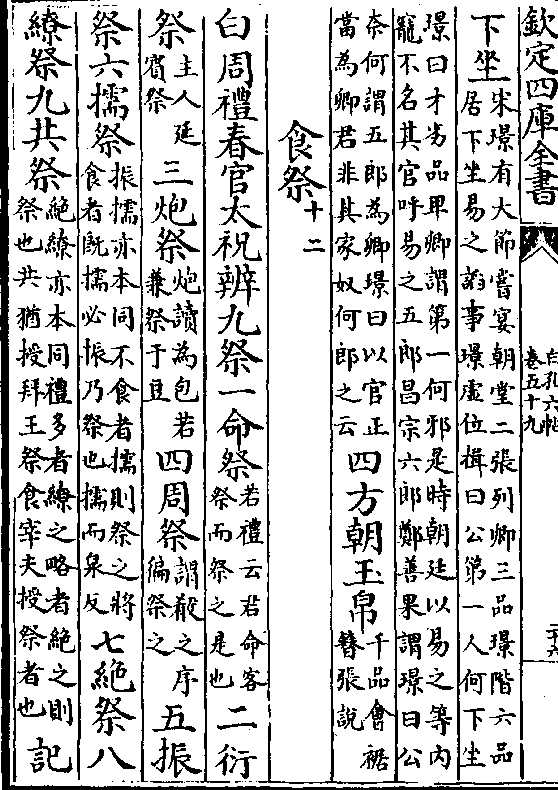 欽定四庫全書
白孔六帖
卷五十九
下坐
宋璟有大節嘗宴朝堂二張列卿三品璟階六品
居下坐易之諂事璟虛位揖曰公第一人何下坐
璟曰才劣品卑卿謂第一何邪是時朝廷以易之等内
寵不名其官呼易之五郎昌宗六郎鄭善果謂璟曰公
奈何謂五郎為卿璟曰以官正
當為卿君非其家奴何郎之云
四方朝玉帛
千品會裾
簪張說
食祭十二
白周禮春官太祝辨九祭一命祭
若禮云若命客
祭而祭之是也
二衍
祭
主人延
賓祭
三炮祭
炮讀為包若
兼祭于豆
四周祭
謂殽之序
徧祭之
五振
祭六擩祭
振擩亦本同不食者擩則祭之將
食者既擩必振乃祭也擩而泉反
七絶祭八
繚祭九共祭
絶繚亦本同禮多者繚之略者絶之則
祭也共猶授拜王祭食宰夫授祭者也
記